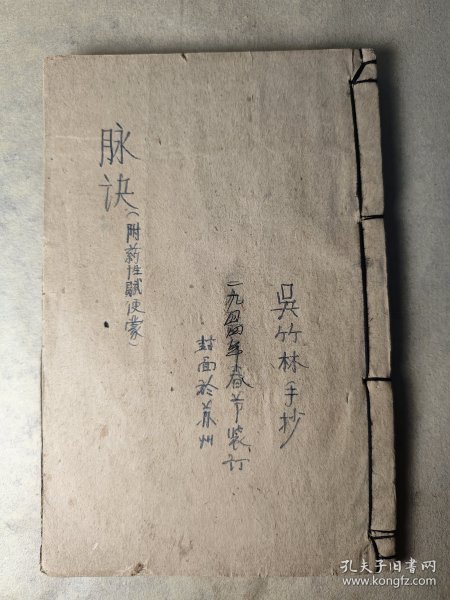 吳竹林手抄
一九五四年春节装订
封面於苏州
脉诀
(附药性赋便蒙)
孔夫子旧书网
www.kongfz.com